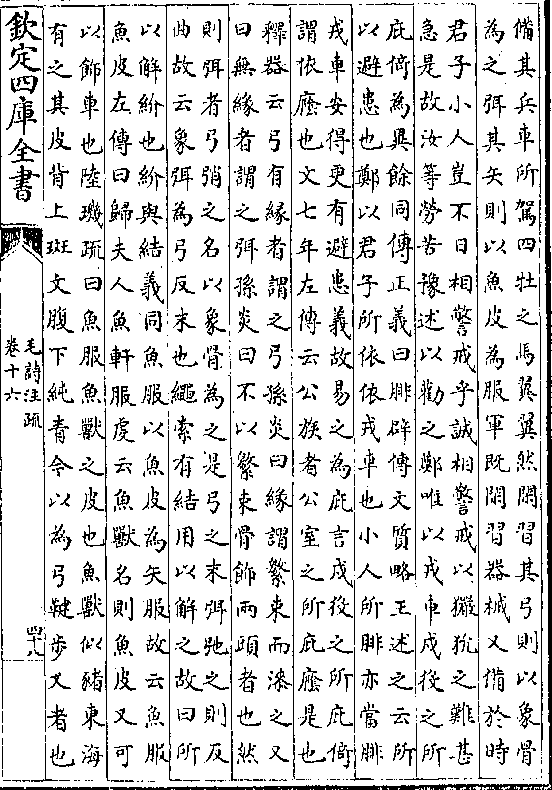 備其兵車所駕四牡之馬翼翼然閑習其弓則以象骨
為之弭其矢則以魚皮為服軍既閑習器械又備於時
君子小人豈不日相警戒乎誠相警戒以玁狁之難甚
急是故汝等勞苦豫述以勸之鄭唯以戎車戍役之所
庇倚為異餘同傳正義曰腓辟傳文質略王述之云所
以避患也鄭以君子所依依戎車也小人所腓亦當腓
戎車安得更有避患義故易之為庇言戍役之所庇倚
謂依廕也文七年左傳云公族者公室之所庇廕是也
釋器云弓有緣者謂之弓孫炎曰緣謂繁束而漆之又
曰無緣者謂之弭孫炎曰不以繁束骨飾兩頭者也然
則弭者弓弰之名以象骨為之是弓之末弭弛之則反
曲故云象弭為弓反末也繩索有結用以解之故曰所
以解紛也紛與結義同魚服以魚皮為矢服故云魚服
魚皮左傳曰歸夫人魚軒服虔云魚獸名則魚皮又可
以飾車也陸璣疏曰魚服魚獸之皮也魚獸似豬東海
有之其皮背上斑文腹下純青今以為弓鞬步叉者也
欽定四庫全書
毛詩注疏
卷十六